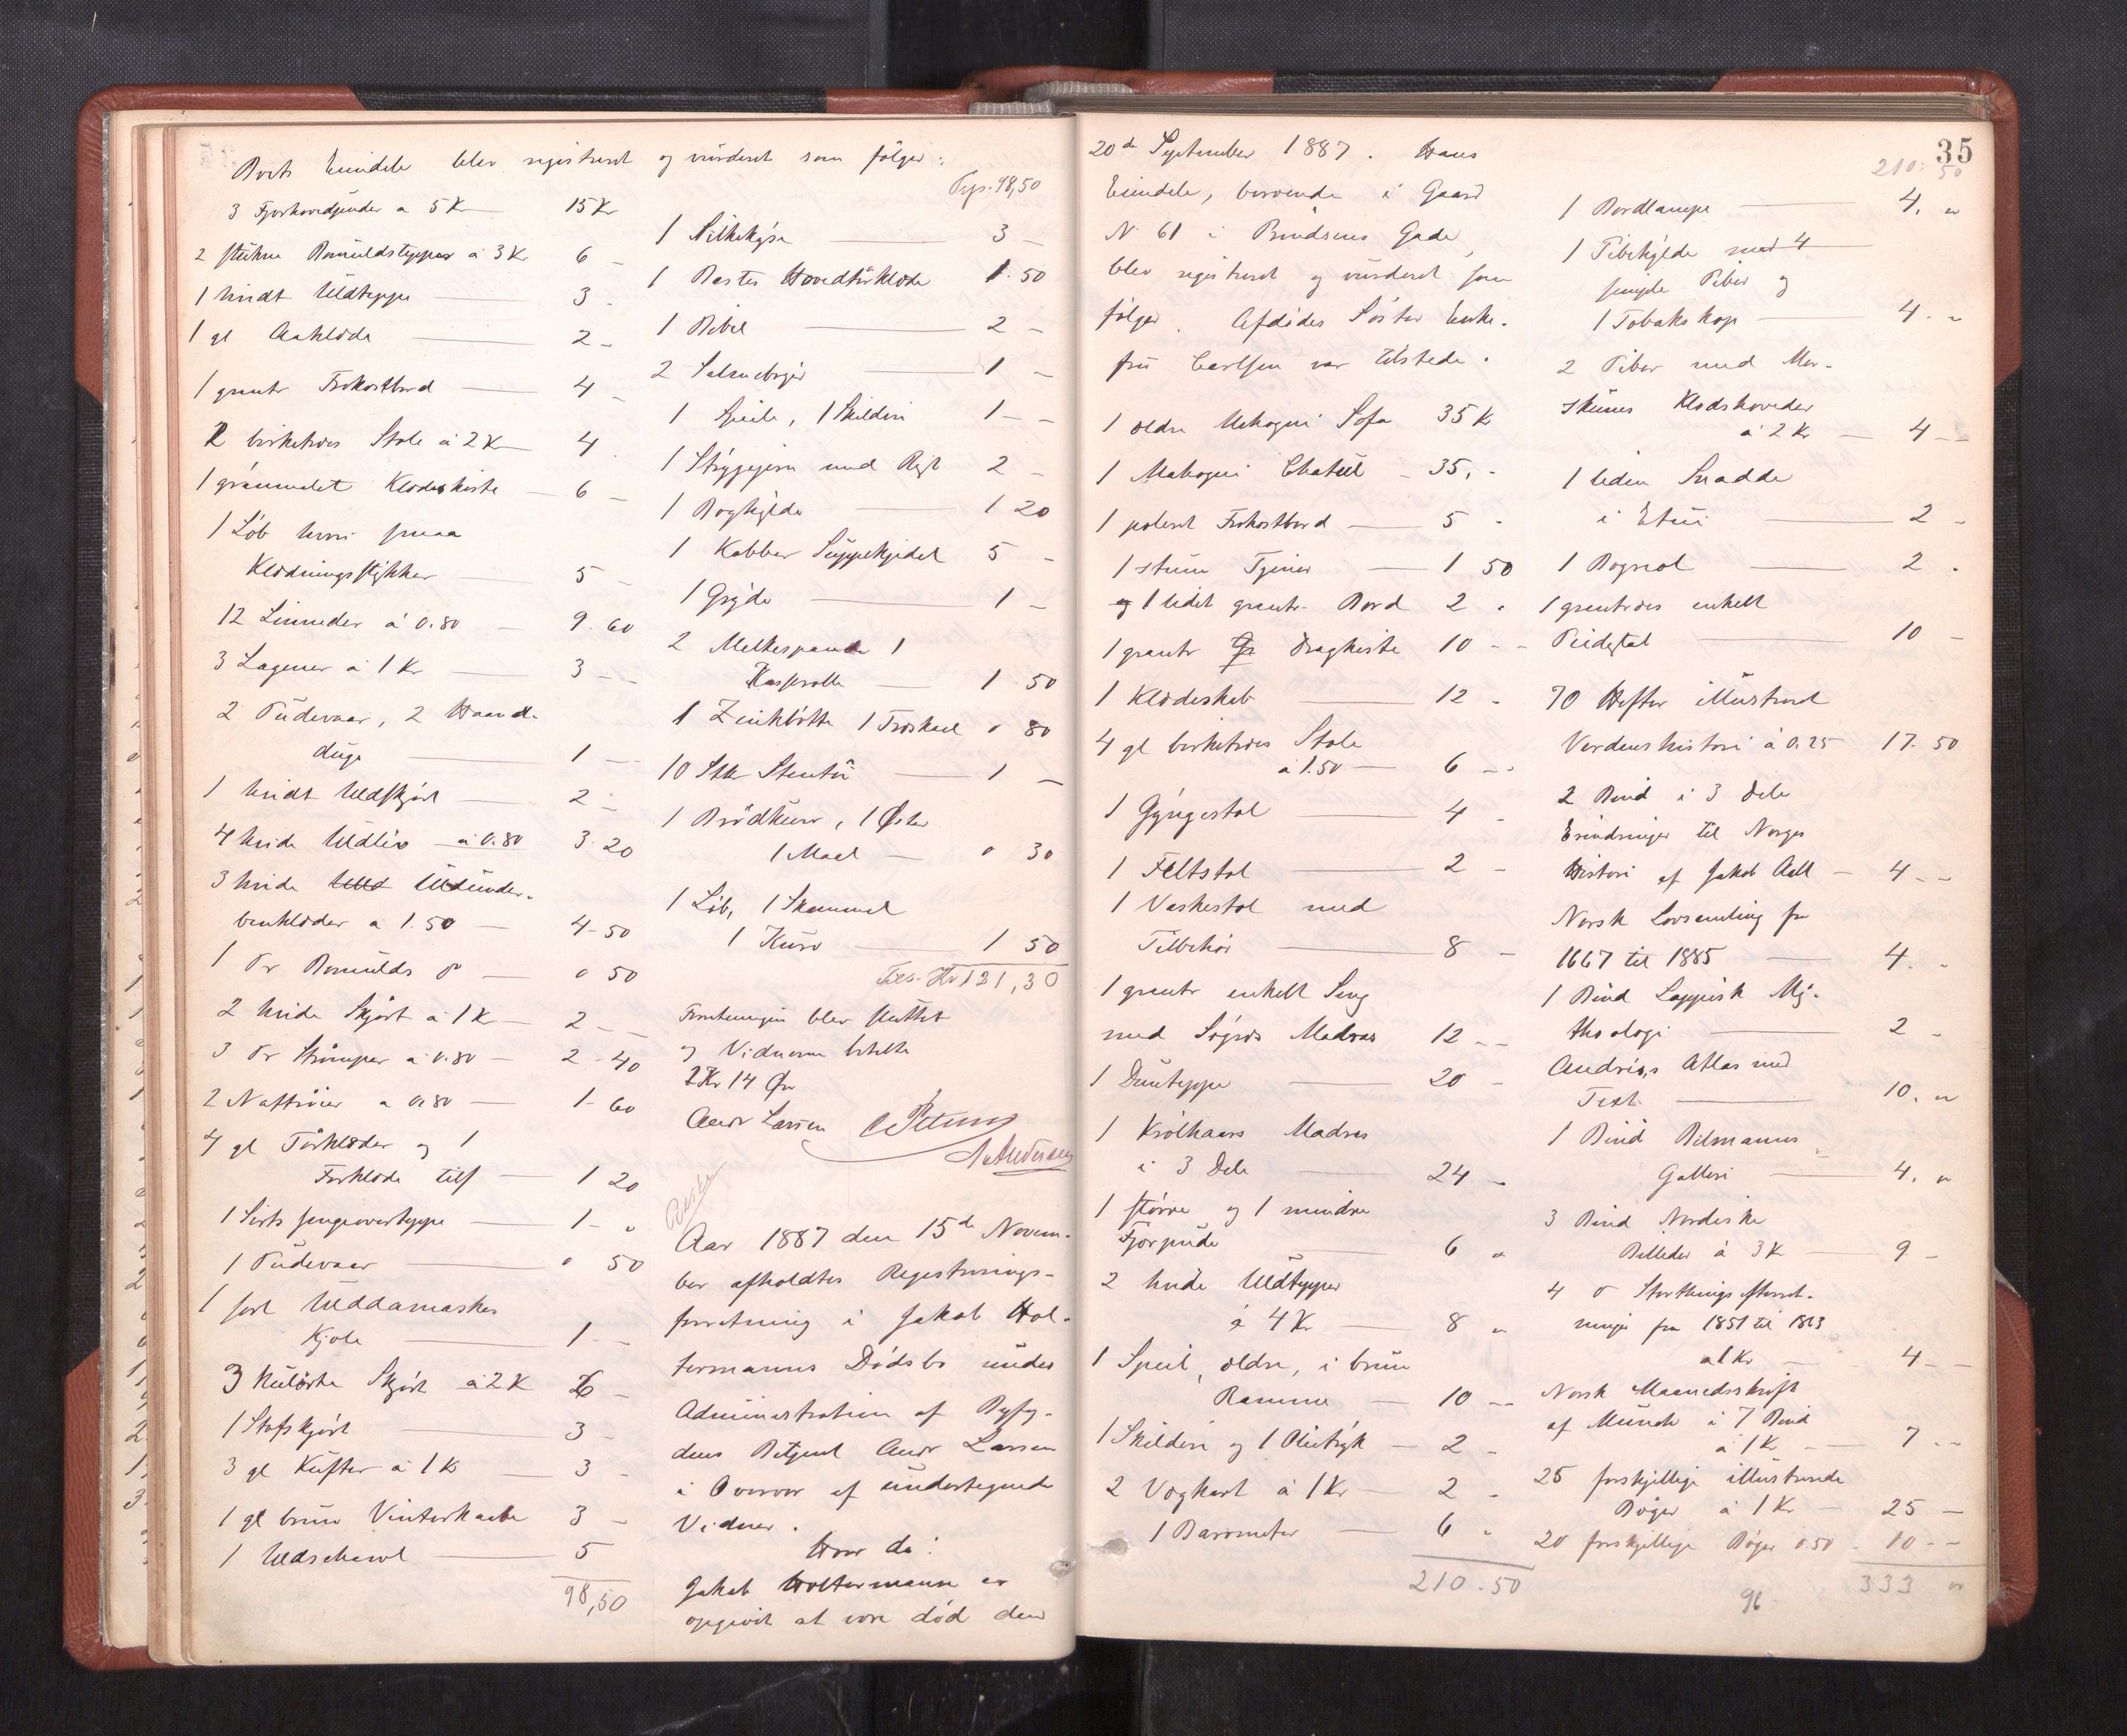 Boets Eiendele blev registreret og vurderet som følger:
3 Fjærhovedpuder a 5 Kr 15 Kr
2 stukne Bomuldstepper á 3 Kr 6 -
1 hvidt Uldteppe 3 -
1 gl Aaklæde 2 -
1 grantr Frokostbord 4 -
2 birketræes Stole á 2 Kr 4 -
1 grønmalet Klædeskiste 6 -
1 Løb hvori smaa
Klædningsstykker 5 -
12 Linneder á 0.80 9.60
3 Lagener á 1 Kr 3 - -
2 Pudevaar, 2 Haand-
duge 1 - -
1 hvidt Uldskjørt 2 -
4 hvide Uldliv á 0.80 3.20
3 hvide Uldunder-
benklæder a 1.50 4-50
1 Pr Bomulds do 0 50
2 hvide Skjørt á 1 K 2 - -
3 Pr Strømper a 0.80 2-40
2 Nattrøier a 0.80 1-60
4 gl Tørklæder og 1
Forklæde tils 1 20
1 Sirts Sengeovertæppe 1 - "
1 Pudevaar 0 50
1 sort Ulddamaskes
Kjole 1 -
3 kulørte Skjørt á 2 K 6 -
1 Stofskjørt 3 -
3 gl Kufter á 1 Kr 3 -
1 gl brun Vinterkaabe 3 -
1 Uldschawl 5
98,50
Trp. 98,50
1 Silkekyse 3 -
1 Bastes Hovedtørklæde 1.50
1 Bibel 2 -
2 Salmebøger 1 -
1 Speile, 1 Skilderi 1 - -
1 Strygejern med Rist 2 -
1 Boghylde 1 20
1 Kobber Suppekjedel 5 -
1 Gryde 1 -
2 Melkespande 1
Kasserolle 1 50
1 Zinkbøtte 1 Træskaal 0 80
10 Stkr Stentøi 1 -
1 Brødkurv, 1 Øster
1 Maal 0 30
1 Løb, 1 Skammel
1 Kurv 1 50
Tils. Kr 121,30
Forretningen blev sluttet
og Vidnerne betalte
2 Kr 14 Øre
Andr Larsen
A Andersen
Aar 1887 den 15de Novem-
ber afholdtes Registrerings-
forretning i Jakob Hol-
termanns Dødsbo under
Administration af Byfog-
dens Betjent Andr Larsen
i Overvær af undertegnede
Vidner.
Hvor da:
Jakob Holtermann er
opgivet at være død den
35
20de September 1887. Hans
Eiendele, beroende i Gaard
No 61 i Brodsens Gade,
blev registreret og vurderet som
følger. Afdødes Søster Enke-
fru Carlsen var tilstede.
1 ældre Mahogni Sofa 35 Kr
1 Mahogni Chatul 35. -
1 poleret Frokostbord 5 -
1 stum Tjener 1 50
og 1 lidet grantr. Bord 2 "
1 grantr Dragkiste 10 - -
1 Klædeskab 12 -
4 gl birketræes Stole
á 1.50 6 - -
1 Gyngestol 4 -
1 Feltstol 2 -
1 Vaskestol med
Tilbehør 8 -
1 grantr enkelt Seng
med Søgræs Madras 12 - -
1 Duntæppe 20 -
1 Krølhaars Madras
i 3 Dele 24 -
1 større og 1 mindre
Fjærpude 6 "
2 hvide Uldtepper
á 4 Kr 8 "
1 Speil, ældre, i brun
Ramme 10 - -
1 Skilderi og 1 Olietryk 2 -
2 Vægkart á 1 Kr 2 -
1 Barometer 6 "
210.50
210.50
1 Bordlampe 4. "
1 Pibehylde med 4
simple Piber og
1 Tobakskop 4. "
2 Piber med Mer-
skums Klodshoveder
á 2 Kr 4 - -
1 liden Snadde
i Etui 2 -
1 Bogreol 2 -
1 grantræes enkelt
Piedestal 10 -
70 Hefter illustreret
Verdenshistorie á 0.25 17.50
2 Bind i 3 Dele
Erindringer til Norges
Historie af Jakob Aall 4 - -
Norsk Lovsamling fra
1667 til 1885 4. -
1 Bind Lappisk My-
thologi 2 -
Andrées Atlas med
Text 10. "
1 Bind Bilmanns
Galleri 4. "
3 Bind Nordiske
Billeder á 3 Kr 9 -
4 do Storthingsefterret-
ninger fra 1851 til 1813
a 1 Kr 4 - -
Norsk Maanedsskrift
af Munch i 7 Bind
á 1 K 7 - -
25 forskjellige illustrerede
Bøger á 1 Kr 25 -
20 forskjellige Bøger 0.50 10 - -
333 "
96